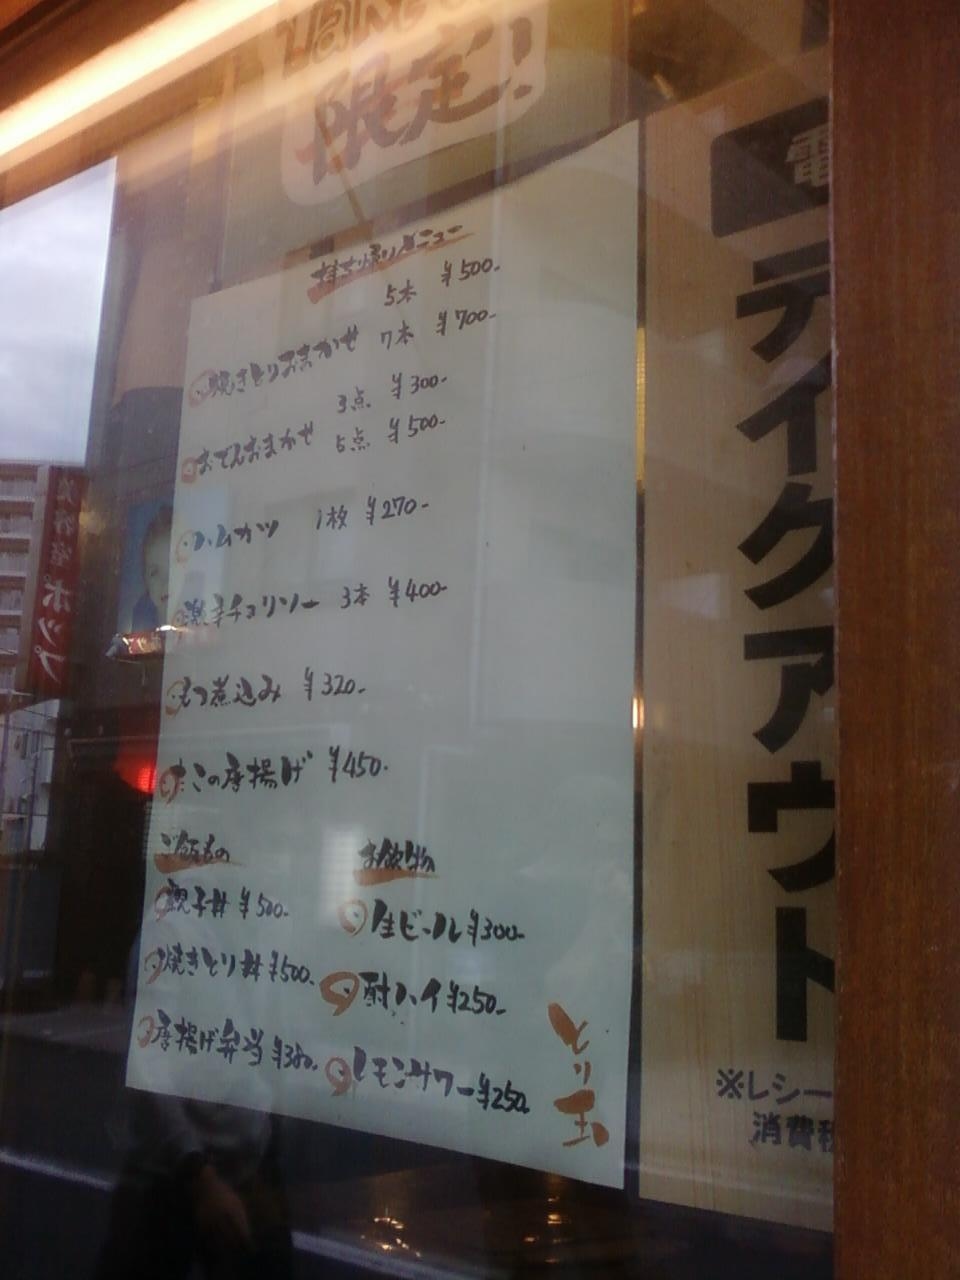 限定!
持ち帰りメニュー
5本 ¥500-
焼きとりおまかせ 7本 ¥700-
3点 ¥300-
おでんおまかせ 5点 ¥500-
ハムカツ 1枚 ¥270-
激辛チョリソー 3本 ¥400-
もつ煮込み ¥320-
たこの唐揚げ ¥450-
ご飯もの
親子丼 ¥500-
焼きとり丼 ¥500-
唐揚げ弁当
お飲物
生ビール ¥300-
酎ハイ ¥250-
レモンサワー ¥250-
とり玉
電
テイクアウト
※レシー
消費税
美容室ポップ